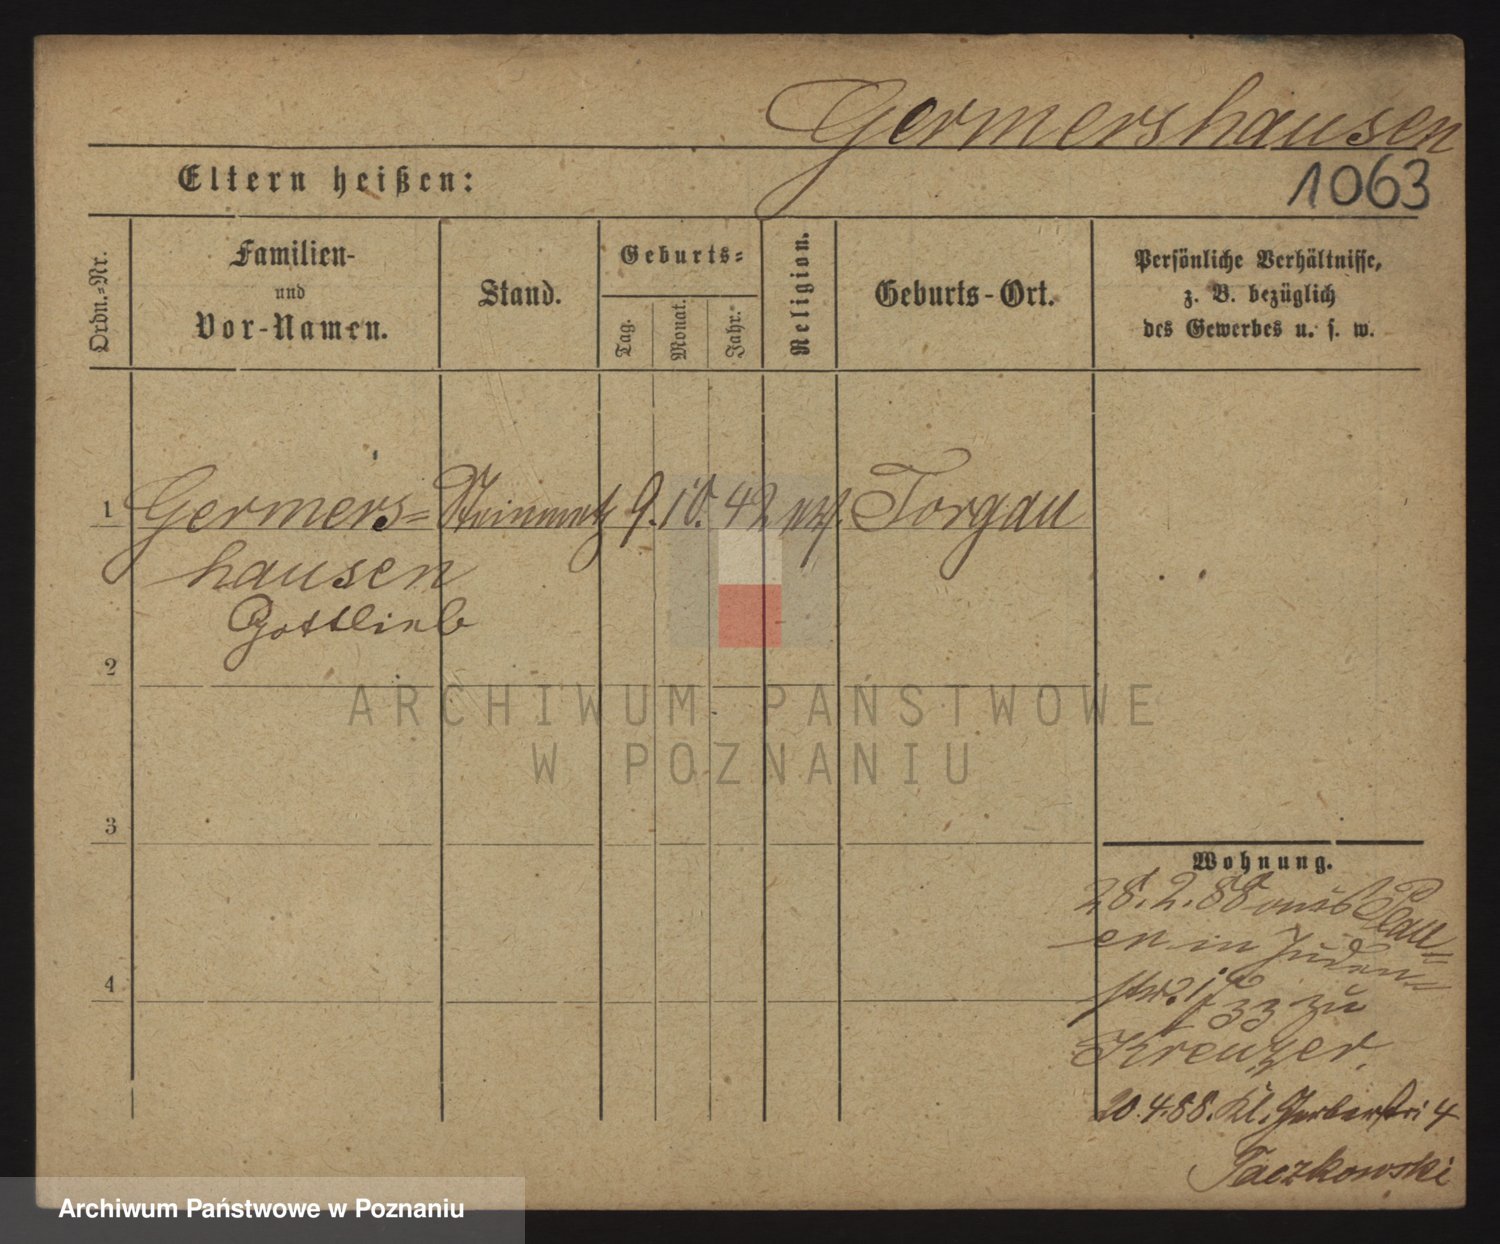 Germershausen
1063
Eltern heißen:
Ordn.-Nr.
Familien-
und
Vor-Namen.
Stand.
Geburts-
Tag.
Monat.
Jahr.
Religion.
Geburts-Ort.
Persönliche Verhältnisse,
z. B. bezüglich
des Gewerbes u. s. w.
1 Germers= Steinmetz 9. 10. 42 Torgau
hausen
Gottlieb
2
3
4
Wohnung.
28. 2. 88 aus Plau=
en in Juden=
zu
Kreuzer.
20. 4. 88. Kl. Gerberstr. 4
Taczkowski
ARCHIWUM PAŃSTWOWE
W POZNANIU
Archiwum Państwowe w Poznaniu